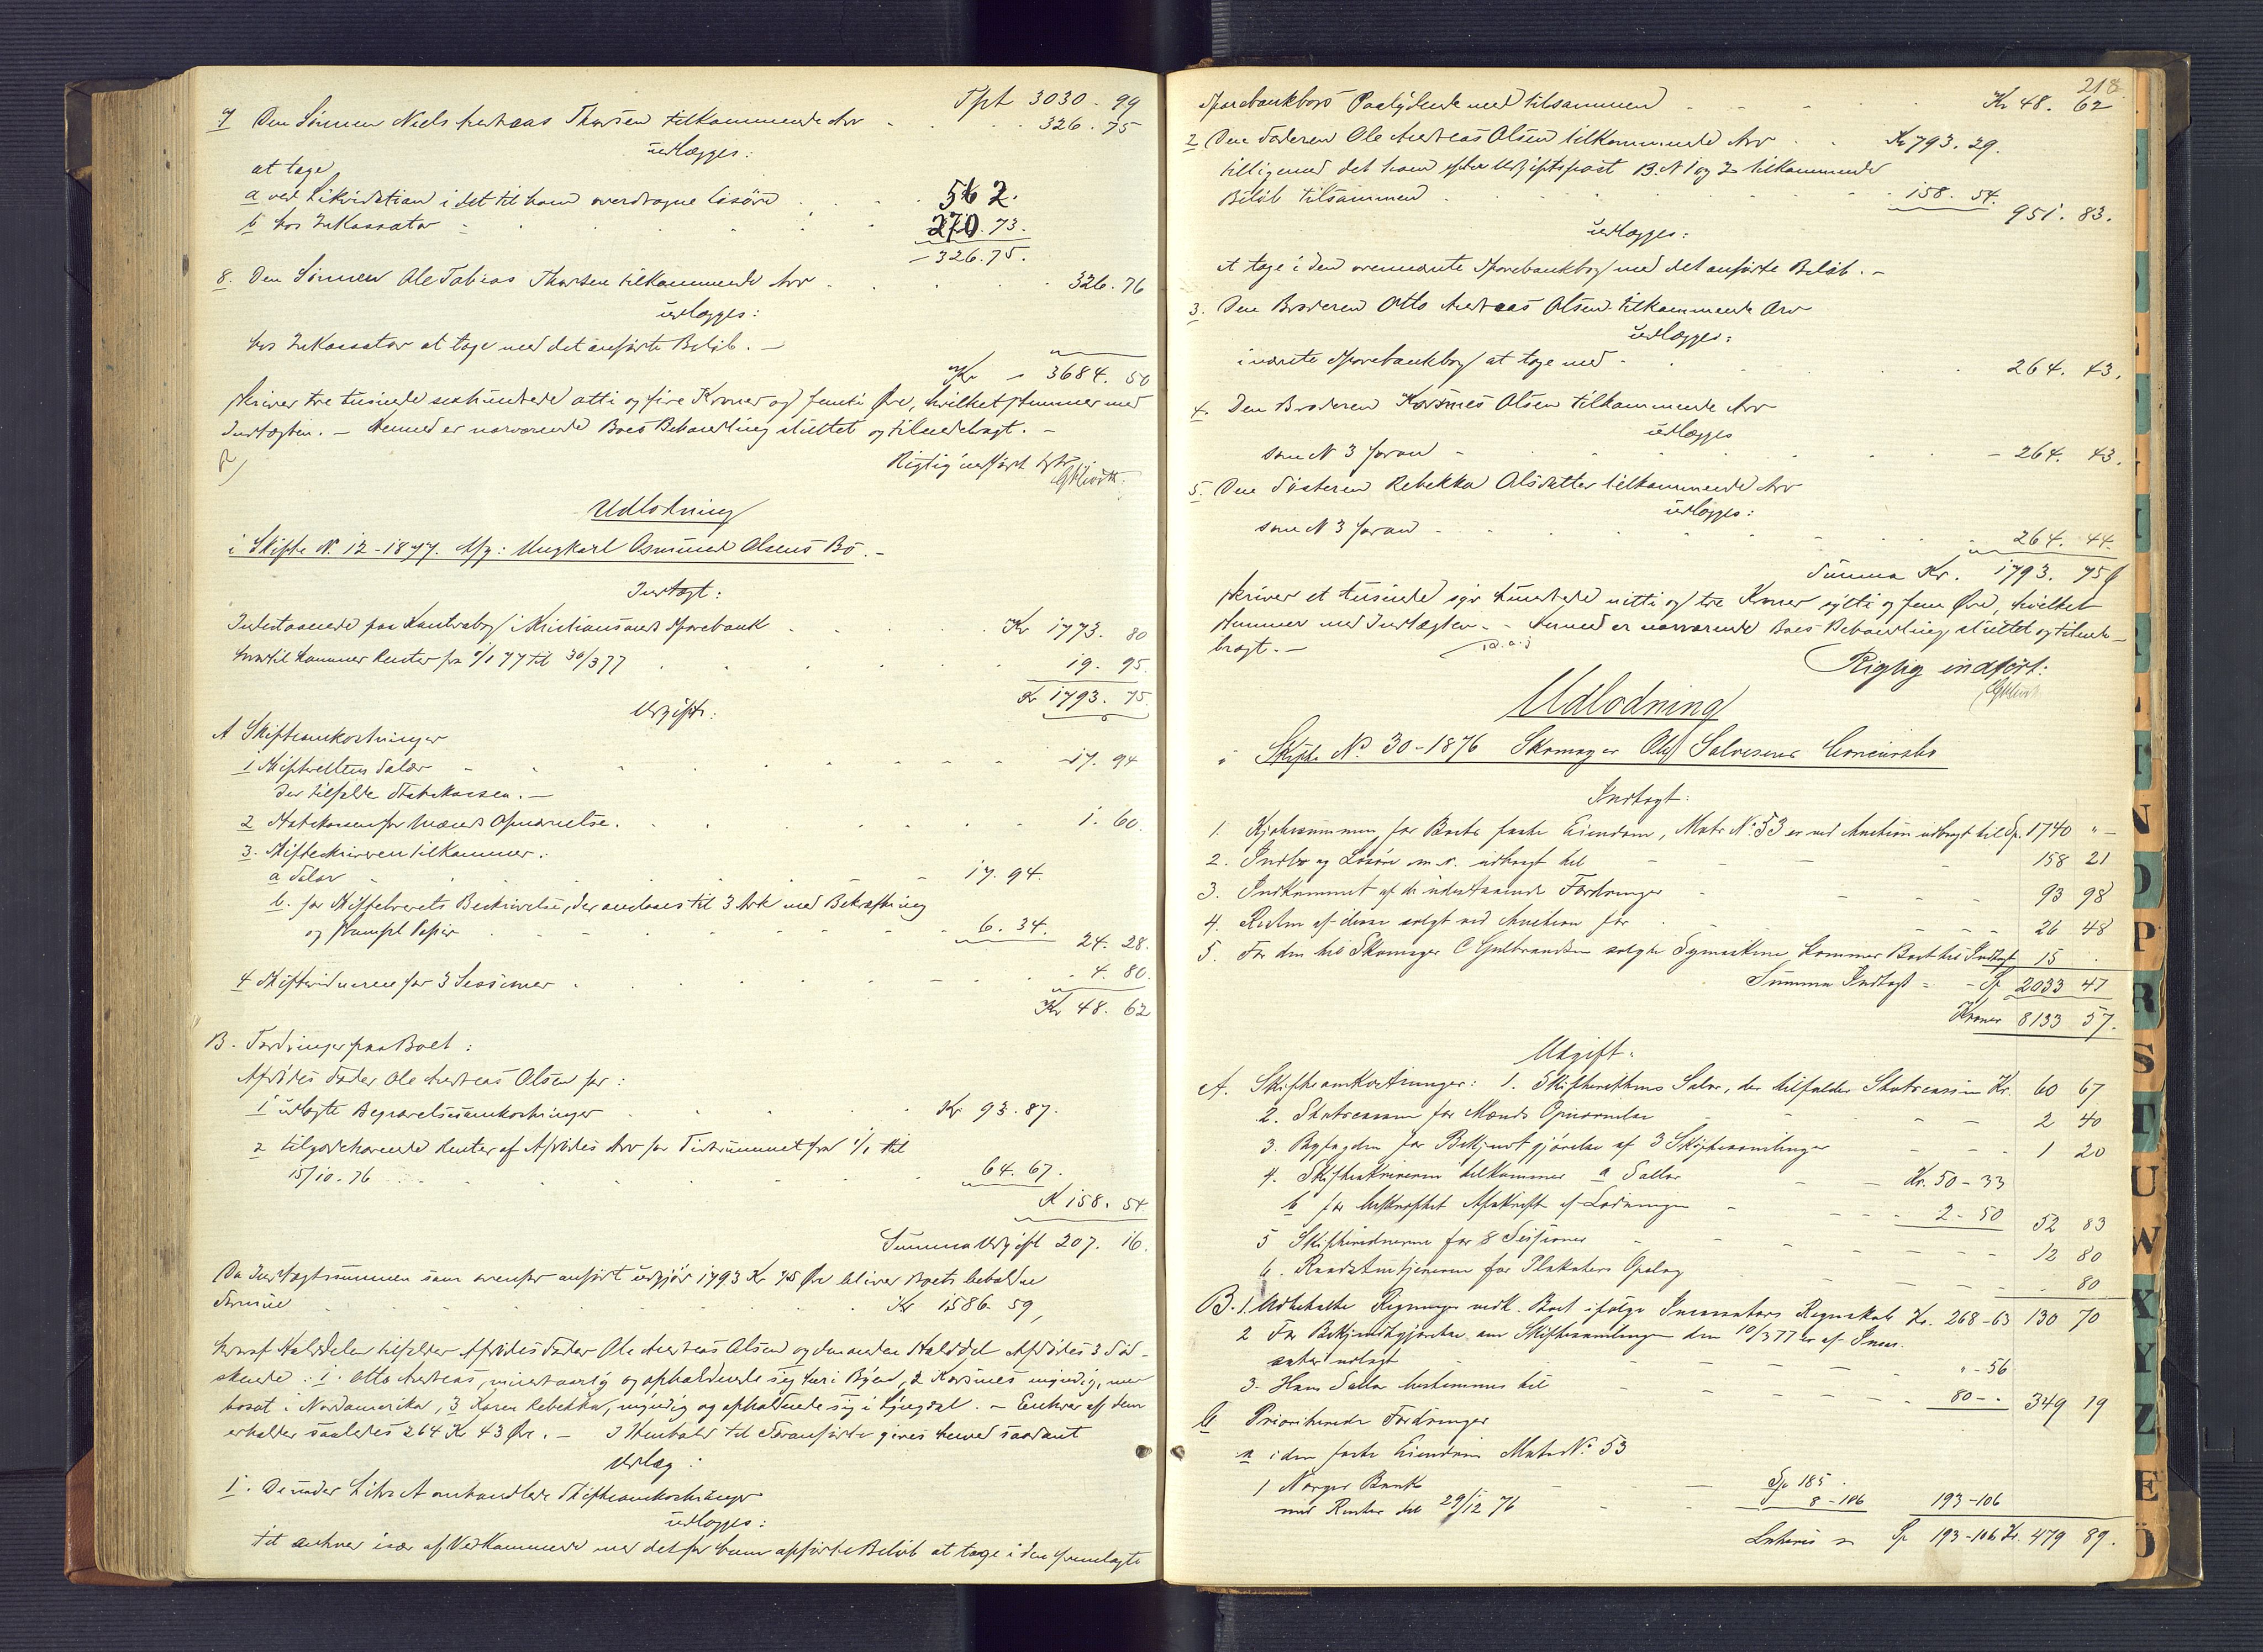 Tpt 3030. 99
7 Den Sønnen Niels Andreas Thorsen tilkommende Arv 326. 75
udlægges:
at tage
a ved Likvidation i det til ham overdragne Løsøre 562.
b hos Inkassator 270. 73.
326. 75.
8. Den Sønnen Ole Tobias Thorsen tilkommende Arv 326. 76
udlægges:
hos Inkassator at tage med det anførte Beløb. –
Kr 3684. 50
skriver tre tusinde sexhundrede otti og fire Kroner og femti Øre, hvilket stemmer med
Indtægten. – Hermed er nærværende Boes Behandling sluttet og tilendebragt. –
Rigtig indført
Udlodning
i Skifte N. 12 - 1877. Afg: Ungkarl Osmund Olsens Bo. –
Indtægt:
Indestaaende paa Kontrabog i Kristiansands Sparebank Kr 1773. 80
hvortil kommer Renter fra 1/1 77 til 30/3 77 19. 95.
Kr 1793. 75
Udgift:
A Skifteomkostninger
1 Skifterettens Salær 17. 94
der tilfalde Statskassen. –
2 Statskassen for Mænds Opnævnelse. 1. 60.
3. Skifteskriveren tilkommer:
a Salær 17. 94.
b. for Skiftebrevets Beskrivelse, der anslaaes til 3 Ark med Bekræftning
og stempl. Papir 6. 34. 24. 28.
4 Skiftevidnerne for 3 Sessioner 4. 80.
Kr 48. 62
B. Fordringer paa Boet:
Afdødes Fader Ole Andreas Olsen for:
1 udlagte Begravelsesomkostninger Kr 93. 87.
2 tilgodehavende Renter af Afdødes Arv for Tidsrummet fra 1/1 til
15/10. 76 64. 67.
K 158. 54
Summa Udgift 207. 16.
Da Indtægtssummen som ovenfor anført udgjør 1793 Kr 75 Øre bliver Boets beholdne
Formue Kr 1586. 59,
hvoraf Halvdelen tilfalder Afdødes Fader Ole Andreas Olsen og den anden Halvdel Afdødes 3 Sød-
skende: 1. Otto Andreas, mindreaarig og opholdende sig her i Byen, 2 Rasmus myndig, men
bosat i Nordamerika, 3 Karen Rebekka, myndig og opholdende sig i Lyngdal. – Enhver af dem
erholder saaledes 264 Kr 43 Øre. – I Henhold til Foranførte gives herved saadant
Udlæg:
1. De under Litra A omhandlede Skifteomkostninger
udlægges:
til enhver især af Vedkommende med det for ham opførte Beløb at tage i den fremlagte
218
Sparebankbogs Paalydende med tilsammen Kr 48. 62
2 Den Faderen Ole Andreas Olsen tilkommende Arv Kr 793. 29.
tilligemed det ham efter Udgiftspost B. N 1 og 2 tilkommende
Beløb tilsammen 158. 54. 951. 83.
udlægges:
at tage i den ovennævnte Sparebankbog med det anførte Beløb. –
3. Den Broderen Otto Andreas Olsen tilkommende Arv
udlægges:
i nævnte Sparebankbog at tage med 264. 43.
4. Den Broderen Rasmus Olsen tilkommende Arv
udlægges
som N 3 foran 264. 43.
5. Den Søsteren Rebekka Olsdatter tilkommende Arv
udlægges:
som N 3 foran 264. 44.
Summa Kr. 1793. 75
skriver et tusinde syv hundrede nitti og tre Kroner sytti og fem Øre, hvilket
stemmer med Indtægten. – Hermed er nærværende Boes Behandling sluttet og tilende-
bragt. –
Rigtig indført:
Udlodning
i Skifte No 30 - 1876 Skomager Oluf Salvesens Concursbo
Indtægt:
1. Kjøbesummen for Boets faste Eiendom, Matr No 53 er ved Auction udbragt til Sp. 1740 " –
2. Indbo og Løsøre m. v. udbragt til 158 21
3. Indkommet af de udestaaende Fordringer 93 98
4. Resten af disse solgt ved Auction for 26 48
5. For den til Skomager C Gulbrandsen solgte Symaskine kommer Boet til Indtægt 15 .
Summa Indtægt Sp 2033 47
Kroner 8133 57.
Udgift:
A. Skifteomkostninger: 1. Skifterettens Salær, der tilfalder Statscassen Kr. 60 67
2. Statscassen for Mænds Opnævnelse 2 40
3. Byfogden for Bekjendtgjørelse af 3 Skiftesamlinger 1 20
4. Skifteskriveren tilkommer a Sallær Kr. 50 – 33
b for bekræftet Afskrift af Lodningen 2 – 50 52 83
5 Skiftevidnerne for 8 Sessioner 12 80
6. Raadstutjeneren for Plakaters Opslag . 80
B. 1. Udbetalte Regninger vedk. Boet ifølge Incassators Regnskab Kr. 268 – 63 130 70
2 For Bekjendtgjørelse om Skiftesamlingen den 10/3 77 er af Incas-
sator udlagt " – 56
3. Hans Sallær bestemmes til 80 – . 349 19
C Prioriterede Fordringer
a i den faste Eiendom Matr No 53
1 Norges Bank Sp 185 .
med Renter til 29/12 76 8 – 106 193 – 106
Lateris Sp 193 – 106 Kr. 479 89.
N
D
P
R
S
T
U
W
X
Y
Z
Æ
Ö